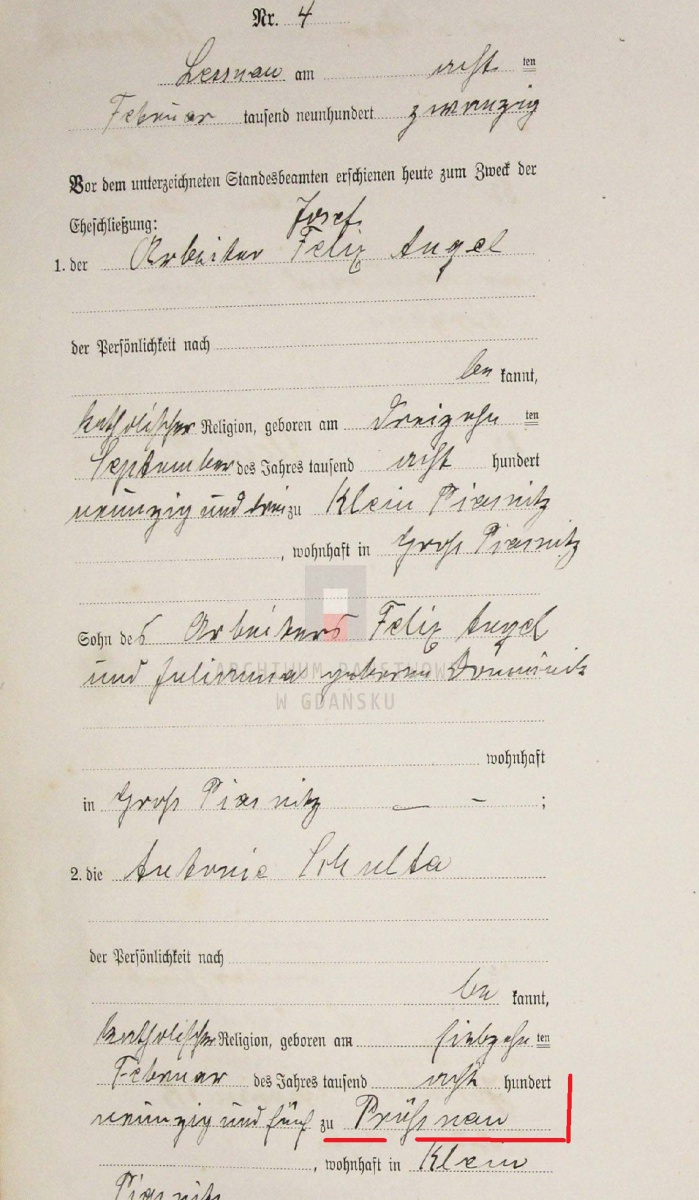 Nr. 4
Lessnau am acht ten
Februar tausend neunhundert zwanzig
Vor dem unterzeichneten Standesbeamten erschienen heute zum Zweck der
Eheschließung:
Josef
1. der Arbeiter Felix Angel
der Persönlichkeit nach
be kannt,
katholischer Religion, geboren am dreizehn ten
September des Jahres tausend acht hundert
neunzig und drei zu Klein Piasnitz
, wohnhaft in Groß Piasnitz
Sohn des Arbeiters Felix Angel
und Julianna geborene
ARCHIWUM PAŃSTWOWE
W GDAŃSKU
wohnhaft
in Groß Piasnitz — - ;
2. die Antonie Schulta
der Persönlichkeit nach
be kannt,
katholischer Religion, geboren am siebzehn ten
Februar des Jahres tausend acht hundert
neunzig und fünf zu Prüßnau
, wohnhaft in Klein
Piasnitz